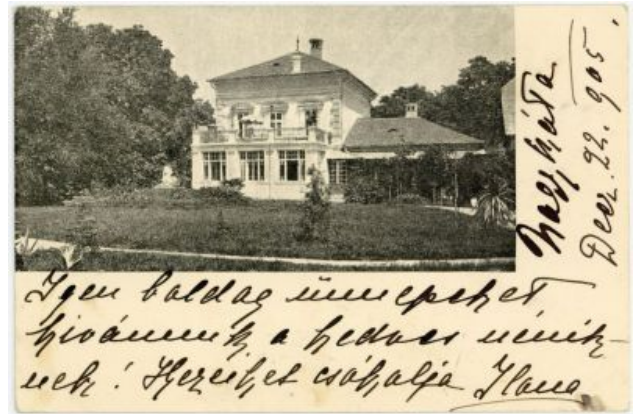 Nagykáta
Dec. 22. 905.
Igen boldog ünnepeket
kivánunk a kedves néniék-
nek! Kezeiket csókolja Ilona